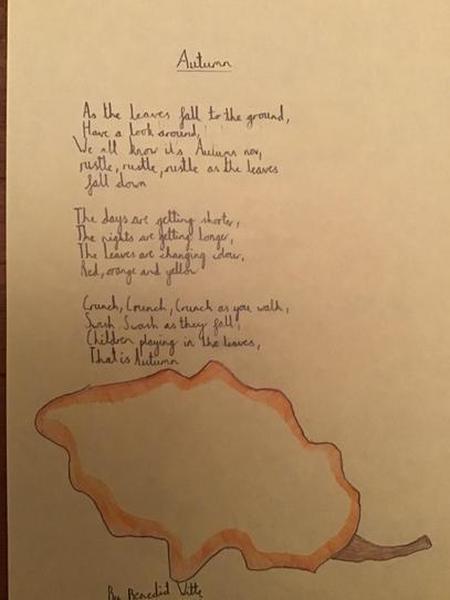 Autumn
As the leaves fall to the ground,
Have a look around,
We all know it's Autumn now,
rustle, rustle, rustle as the leaves
fall down
The days are getting shorter,
The nights are getting longer,
The leaves are changing colour,
Red, orange and yellow
Crunch, Crunch, Crunch as you walk,
Swish Swash as they fall,
Children playing in the leaves,
That is Autumn
By Benedict